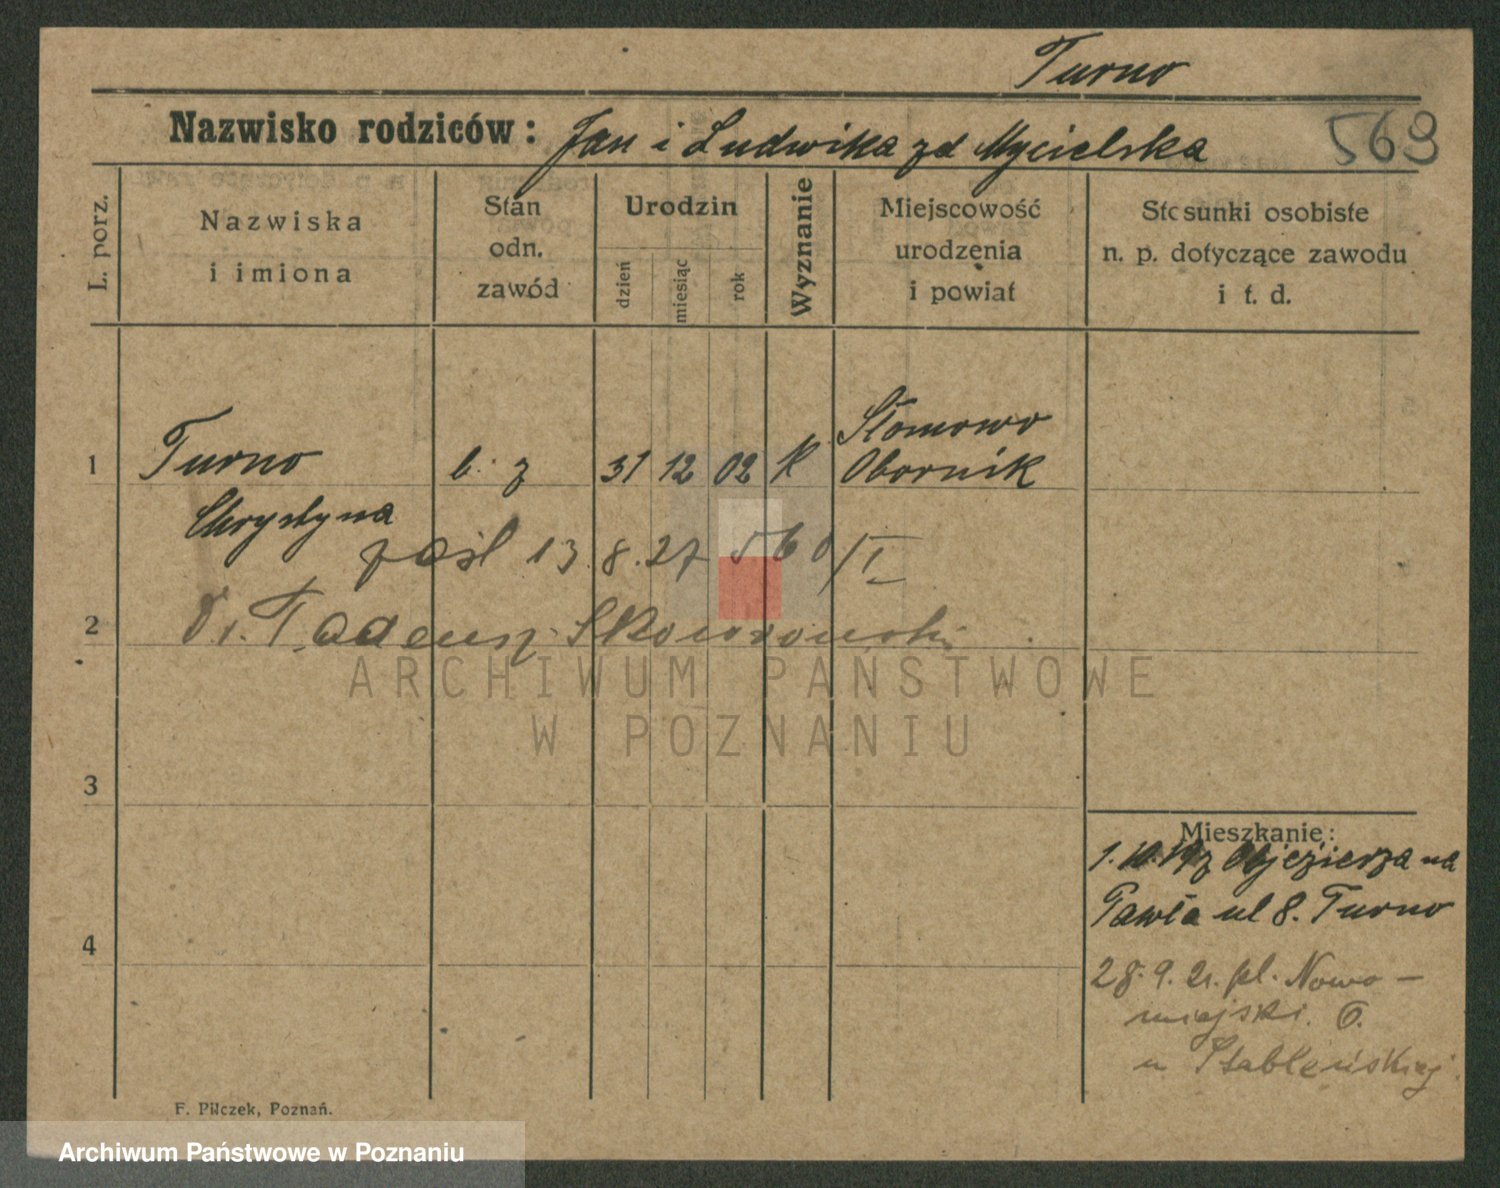 Turno
Nazwisko rodziców: Jan i Ludwika zd Mycielska
569
L. porz.
Nazwiska
i imiona
Stan
odn.
zawód
Urodzin
dzień
miesiąc
rok
Wyznanie
Miejscowość
urodzenia
i powiat
Stosunki osobiste
n. p. dotyczące zawodu
i t. d.
1
Turno b. z 31 12 02 k Słomowo
Obornik
Chrystyna
pośl 13.8.27 560/I
2
Dr. Tadeusz Skoworowski
ARCHIWUM PAŃSTWOWE
W POZNANIU
3
4
Mieszkanie:
1. 10. z Objezierza na
Pawła ul 8. Turno
28. 9. 21. pl. Nowo-
miejski. 6.
u Stableńskiej
F. Pilczek, Poznań.
Archiwum Państwowe w Poznaniu